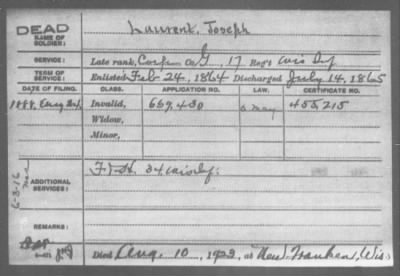 DEAD
NAME OF SOLDIER:
Laurent, Joseph
SERVICE:
Late rank, Corp Co G, 17 Reg't Wis Inf
TERM OF SERVICE:
Enlisted Feb 24, 1864 Discharged July 14, 1865
DATE OF FILING. CLASS. APPLICATION NO. LAW. CERTIFICATE NO.
1888, Aug Invalid, 669,430 455,215
Widow,
Minor,
6-3-16
ADDITIONAL SERVICES:
F. & H. 34 Wis Inf.
REMARKS:
Died Aug. 10, 1922, at New Franken, Wis